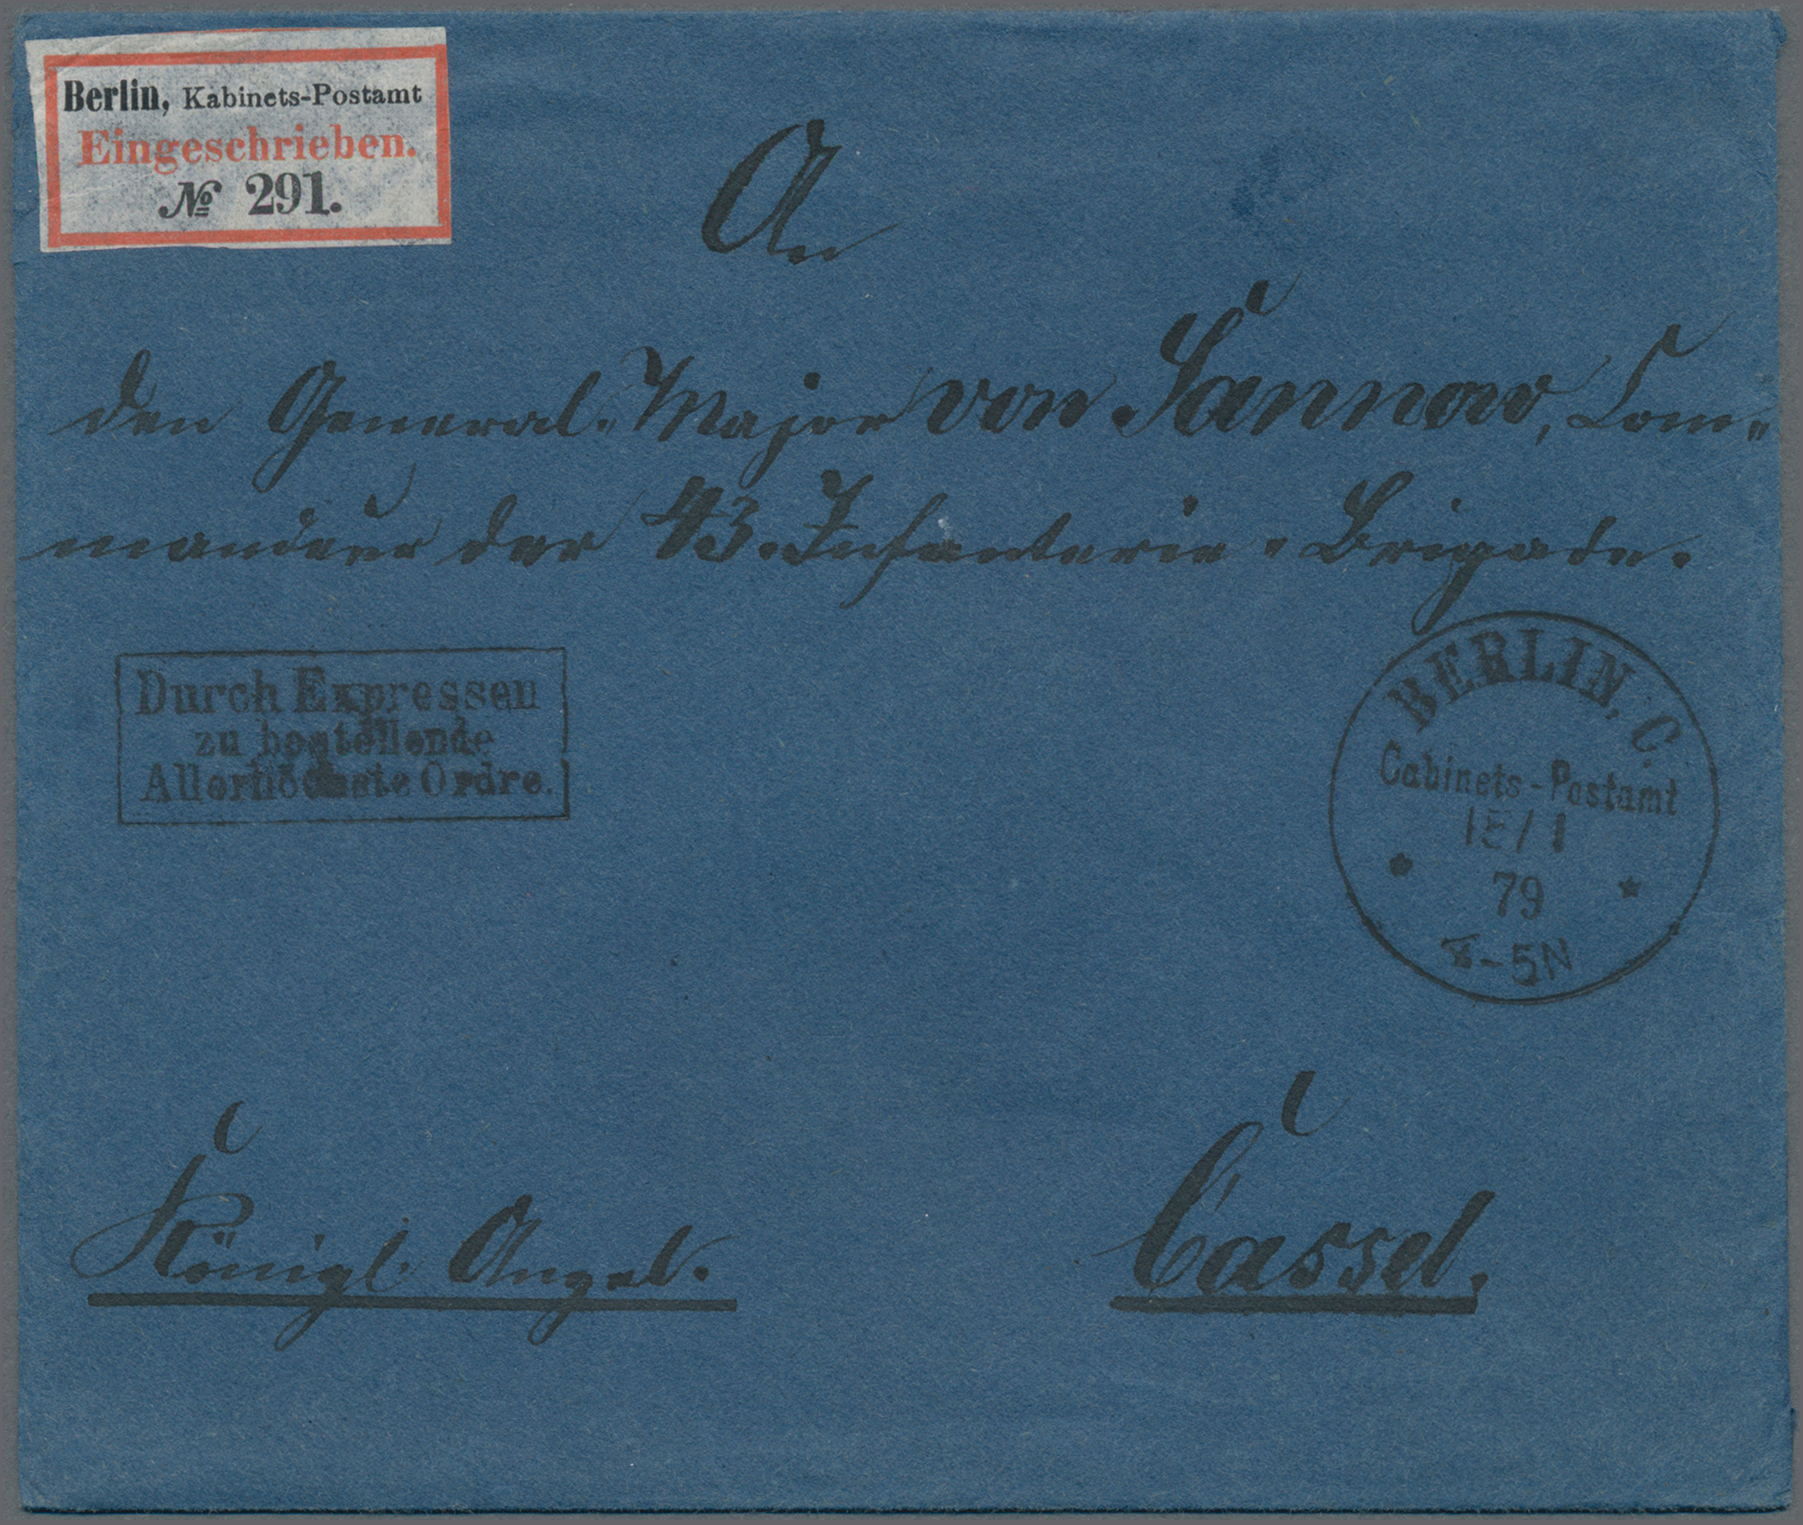 Berlin, Kabinets-Postamt
Eingeschrieben.
№ 291.
An
den General-Major von Sannow, Com-
mandeur der 43. Infanterie-Brigade.
Durch Expressen
zu bestellende
Allerhöchste Ordre.
BERLIN, C.
Cabinets-Postamt
15/1
79
-5N
Königl. Angel.
Cassel.